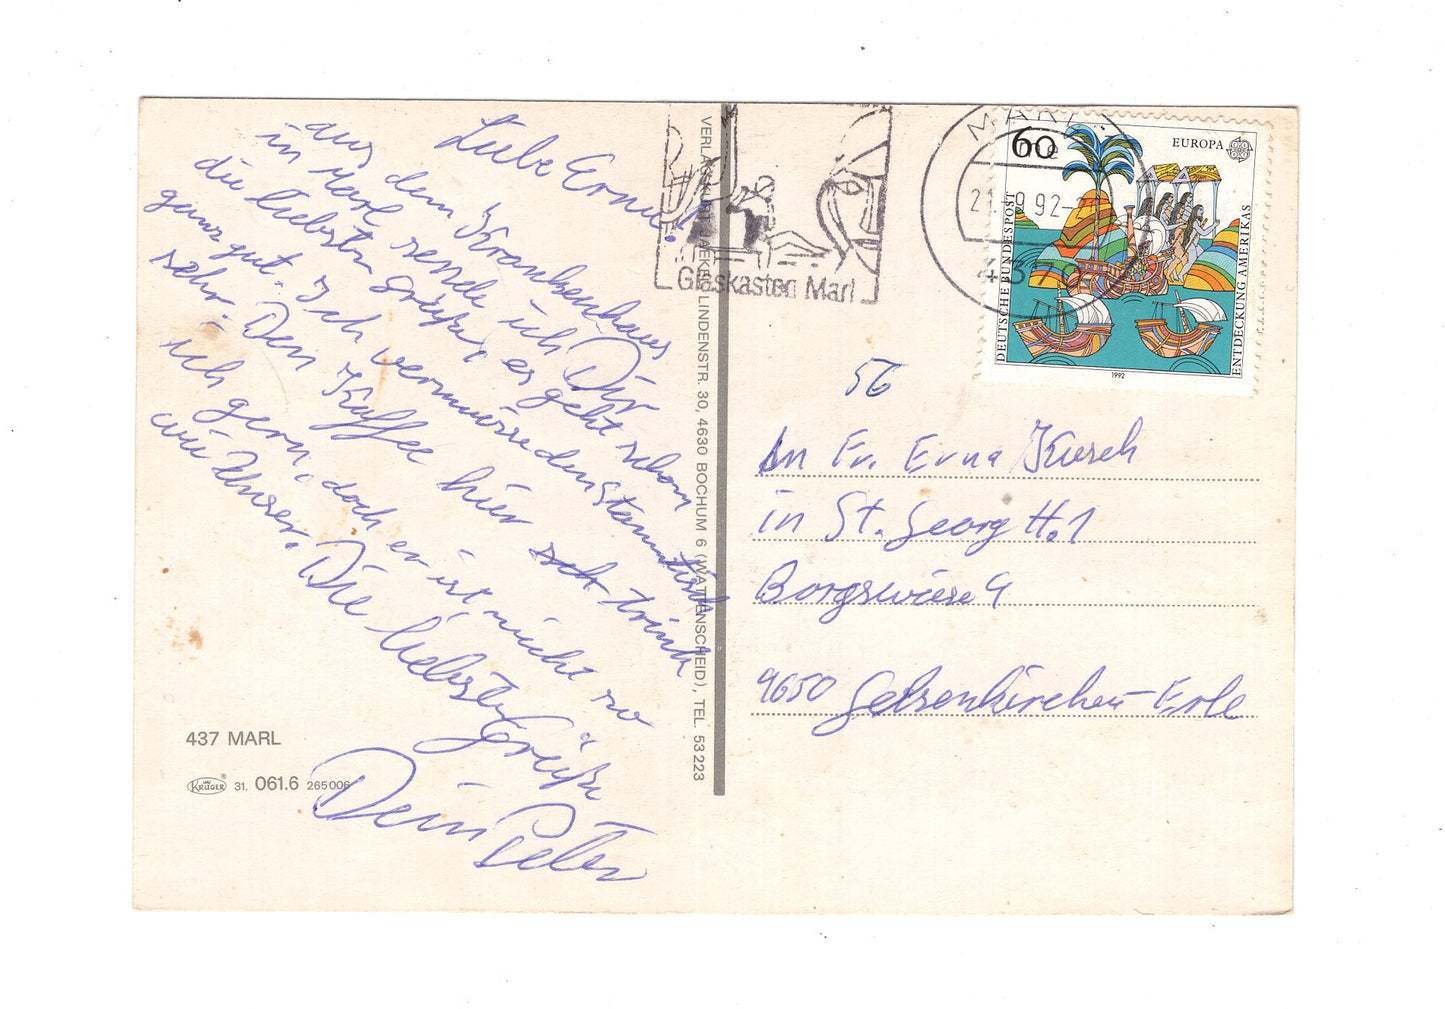 Liebe Erna!
aus dem Krankenhaus
in Marl sende ich Dir
die liebsten Grüße, es geht schon
ganz gut. Ich vermisse den Stammtisch
sehr. Den Kaffee hier trink
ich gern, doch er ist nicht so
wie Unser. Die liebsten Grüße
Dein Peter
437 MARL
KRÜGER ® 31. 061.6 265006
VERLAG KURT LINDENSTR. 30, 4630 BOCHUM 6 (WATTENSCHEID), TEL. 53223
Glaskasten Marl
MARL
21.9.92-
4370
60
EUROPA
DEUTSCHE BUNDESPOST
ENTDECKUNG AMERIKAS
1992
56
An Fr. Erna Kusch
in St. Georg H.1
9650 Gelsenkirchen-Erle